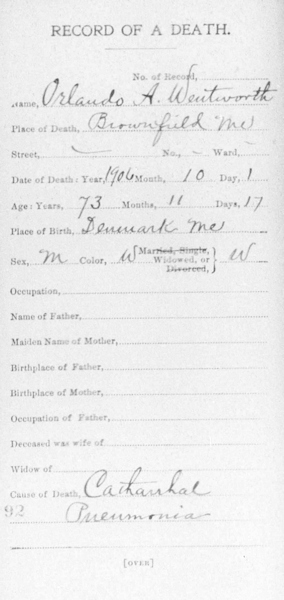 RECORD OF A DEATH.
No. of Record,
Name, Orlando A. Wentworth
Place of Death, Brownfield Me
Street, — No., — Ward, —
Date of Death: Year, 1906 Month, 10 Day, 1
Age: Years, 73 Months, 11 Days, 17
Place of Birth, Denmark Me
Sex, M Color, W { Married, Single, Widowed, or Divorced, } W
Occupation,
Name of Father,
Maiden Name of Mother,
Birthplace of Father,
Birthplace of Mother,
Occupation of Father,
Deceased was wife of
Widow of
Cause of Death, Catharrhal
92 Pneumonia
[OVER]